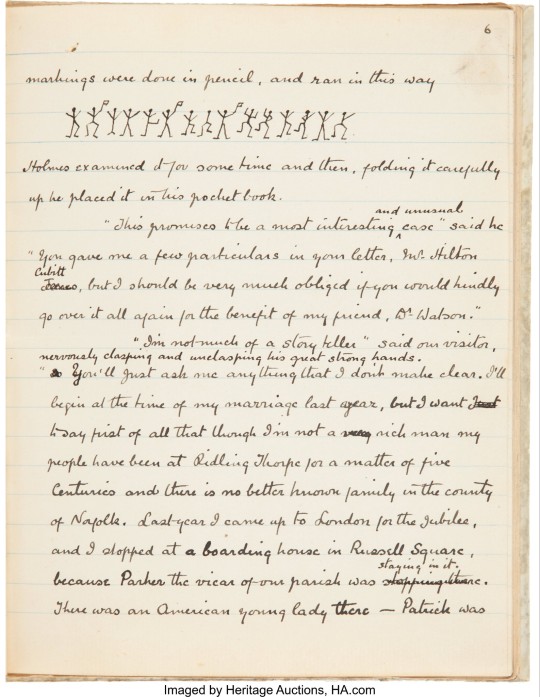 6
markings were done in pencil, and ran in this way
Holmes examined it for some time and then, folding it carefully
up he placed it in his pocket book.
and unusual
"This promises to be a most interesting ^ case" said he
"You gave me a few particulars in your letter, Mr. Hilton
Cubitt
, but I should be very much obliged if you would kindly
go over it all again for the benefit of my friend, Dr. Watson."
"I'm not much of a story teller" said our visitor,
nervously clasping and unclasping his great strong hands.
" You'll Just ask me anything that I don't make clear. I'll
begin at the time of my marriage last year, but I want Just
to say first of all that though I'm not a very rich man my
people have been at Ridling Thorpe for a matter of five
Centuries and there is no better known family in the county
of Norfolk. Last year I came up to London for the Jubilee,
and I stopped at a boarding house in Russell Square,
staying in it.
because Parker the vicar of our parish was stopping there.
There was an American young lady there — Patrick was
Imaged by Heritage Auctions, HA.com